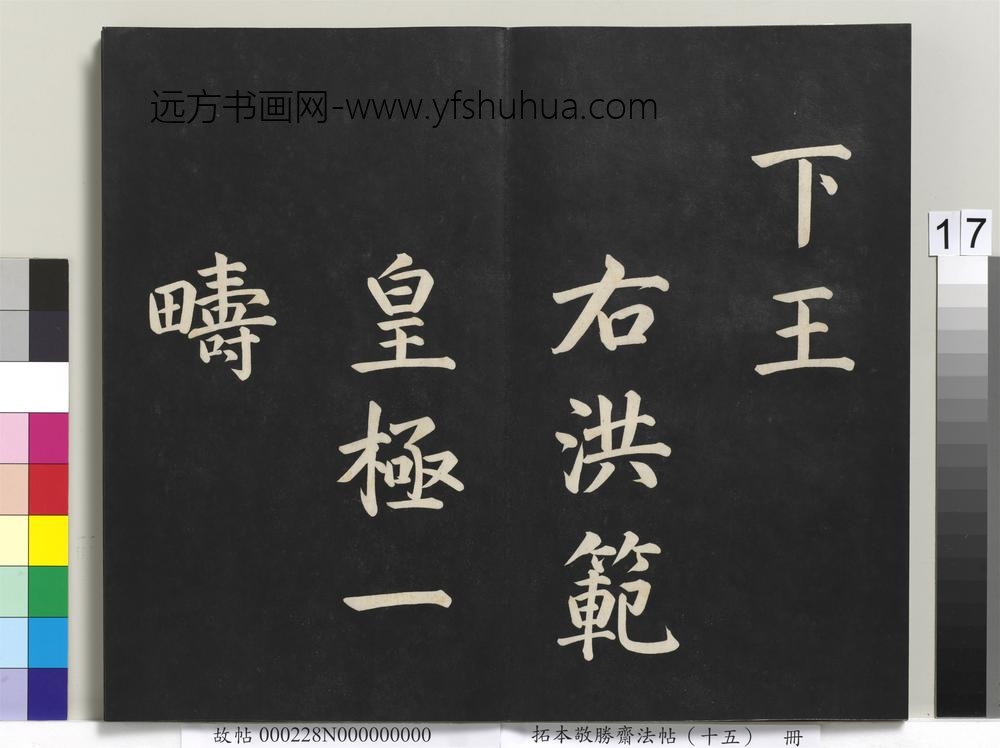 远方书画网-www.yfshuhua.com
下王
右洪範
皇極一
疇
17
故帖 000228N000000000
拓本敬勝齋法帖(十五) 冊